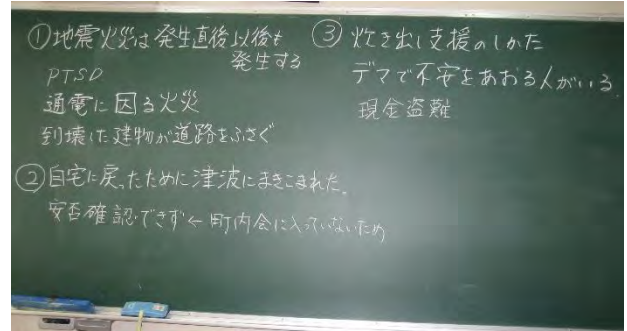 ①地震火災は発生直後以後も
発生する
PTSD
通電に因る火災
到壊した建物が道路をふさぐ
②自宅に戻ったために津波にまきこまれた。
安否確認できず←町内会に入っていないため
③炊き出し支援のしかた
デマで不安をあおる人がいる。
現金盗難